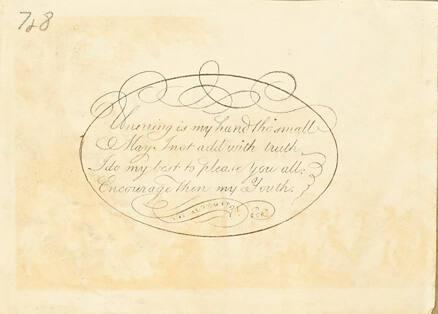 748
Unerring is my hand tho' small
May I not add with truth
I do my best to please you all;
Encourage then my Youth.
THE AUTOMATON